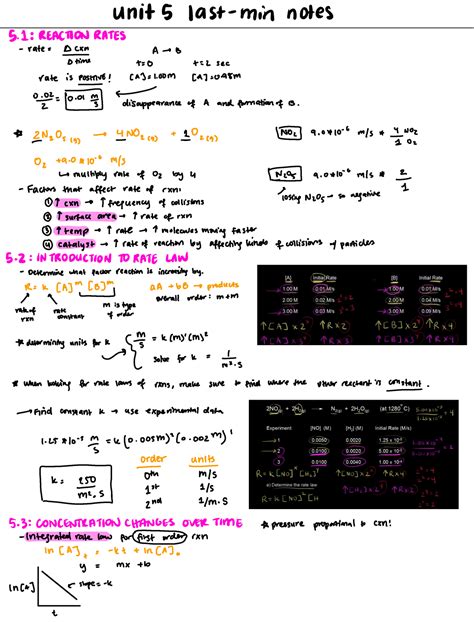 unit 5 last-min notes
5.1: REACTION RATES
- rate = Δ cxn / Δ time
A → B
t=0 t=2 sec
rate is POSITIVE! [A]=1.00M [A]=0.98M
0.02 / 2 = 0.01 m/s
disappearance of A and formation of B.
* 2N₂O₅(g) → 4NO₂(g) + 1O₂(g)
NO₂ 9.0*10⁻⁶ m/s * 4 NO₂ / 1 O₂
O₂ +9.0*10⁻⁶ m/s
↳ multiply rate of O₂ by 4
N₂O₅ 9.0*10⁻⁶ m/s * 2/1
losing N₂O₅ → so negative
- Factors that affect rate of rxn:
① ↑ cxn → ↑ frequency of collisions
② ↑ surface area → ↑ rate of rxn
③ ↑ temp → ↑ rate → molecules moving faster
④ catalyst → ↑ rate of reaction by affecting kinds of collisions of particles
5.2: INTRODUCTION TO RATE LAW
- Determine what factor reaction is increasing by.
R = k [A]ᵐ [B]ᵐ
aA + bB → products
overall order: m+m
rate of rxn
rate constant
m is type of order
[A] Initial Rate
1.00 M 0.01 M/s
2.00 M 0.02 M/s
3.00 M 0.03 M/s
↑[A]x2 ↑Rx2
[B] Initial Rate
1.00 M 0.01 M/s
2.00 M 0.04 M/s
3.00 M 0.09 M/s
↑[B]x2 ↑Rx4
* determining units for k
m/s = k(m)¹(m)²
solve for k = 1 / m²·s
* when looking for rate laws of rxns, make sure to find where the other reactant is constant.
→ Find constant k → use experimental data
1.25*10⁻⁵ m/s = k(0.005m)²(0.002m)¹
k = 250 / m²·s
order units
0th m/s
1st 1/s
2nd 1/m·s
2NO(g) + 2H₂(g) → N₂(g) + 2H₂O(g) (at 1280°C)
Experiment [NO] (M) [H₂] (M) Initial Rate (M/s)
1 0.0050 0.0020 1.25 x 10⁻⁵
2 0.0100 0.0020 5.00 x 10⁻⁵
3 0.0100 0.0040 1.00 x 10⁻⁴
a) Determine the rate law
5.3: CONCENTRATION CHANGES OVER TIME
* pressure proportional to cxn!
- Integrated rate law for first order rxn
ln[A]ₜ = -kt + ln[A]₀
y = mx + b
ln[A]
slope = -k
t